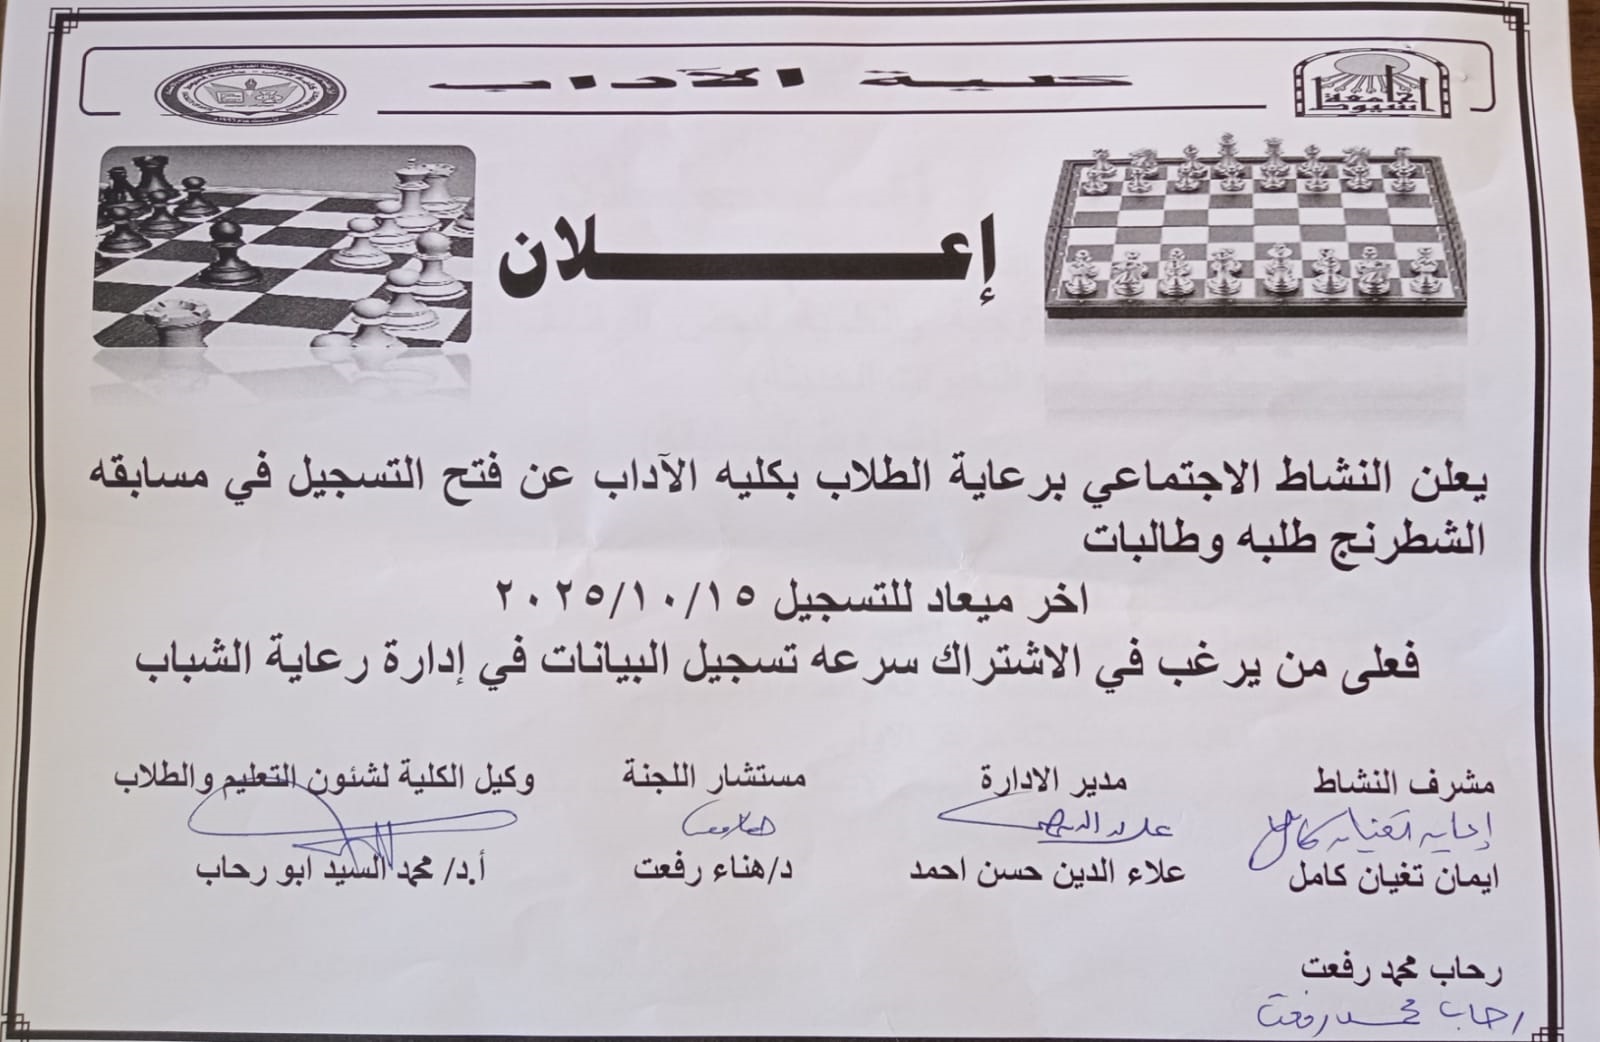 كلية الآداب
جامعة
أسيوط
إعــــلان
يعلن النشاط الاجتماعي برعاية الطلاب بكليه الآداب عن فتح التسجيل في مسابقه
الشطرنج طلبه وطالبات
اخر ميعاد للتسجيل ٢٠٢٥/١٠/١٥
فعلى من يرغب في الاشتراك سرعه تسجيل البيانات في إدارة رعاية الشباب
مشرف النشاط مدير الادارة مستشار اللجنة وكيل الكلية لشئون التعليم والطلاب
ايمان تغيان كامل علاء الدين حسن احمد د/هناء رفعت أ.د/ محمد السيد ابو رحاب
رحاب محمد رفعت
رحاب محمد رفعت